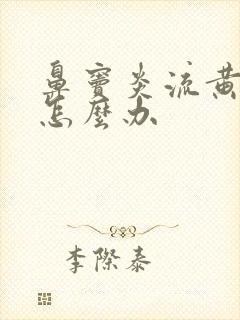 鼻竇炎流黃
怎麼办
李際泰